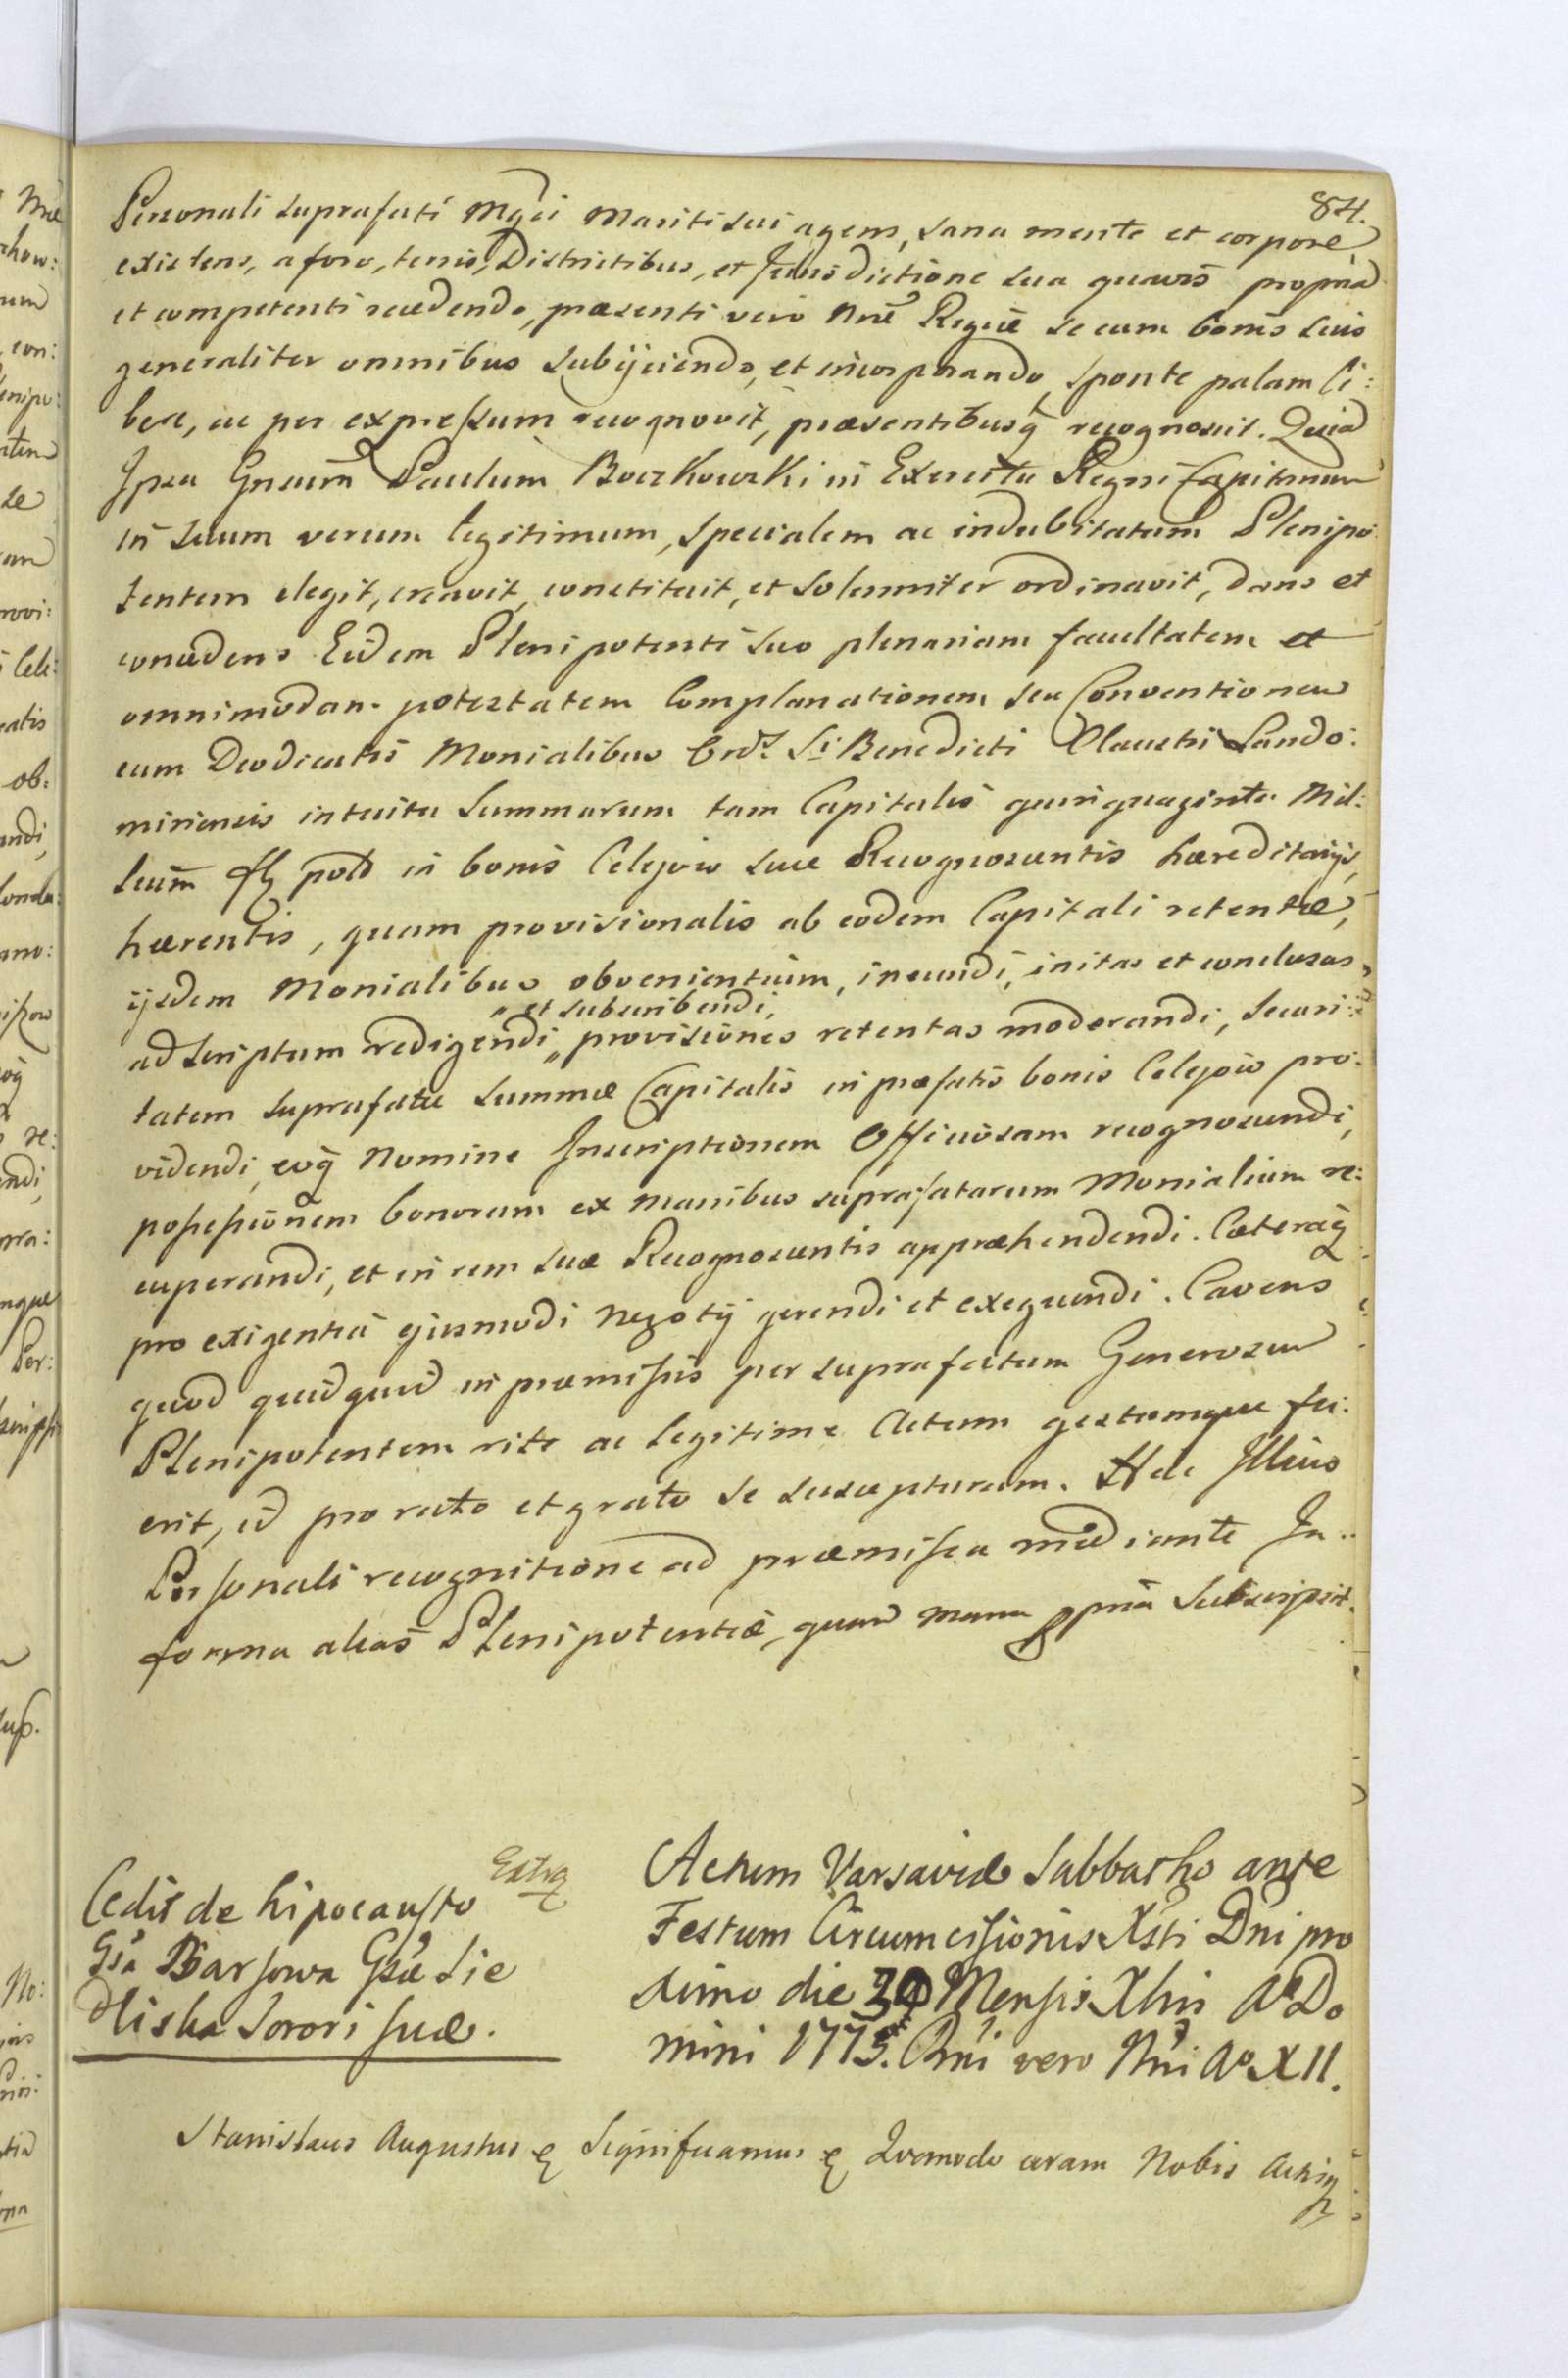 84.
Personali suprafati Mgci Mariti sui agens, sana mente et corpore
existens, a foro, terris, Districtibus, et Jurisdictione sua quavis propria
et competenti recedendo, præsenti vero Nræ Regiæ se cum bonis suis
generaliter omnibus subijciendo, et incorporando, sponte palam li:
bere, ac per expressum recognovit, præsentibusq recognoscit. Quia
Ipsa Gnsum Paulum Boczkowski in Exercitu Regni Capitaneum
in suum verum legitimum, specialem ac indubitatum Plenipo
tentem elegit, creavit, constituit, et solenniter ordinavit, dans et
concedens Eidem Plenipotenti suo plenariam facultatem et
omnimodam potestatem Complanationem seu Conventionem
cum Deodicatis Monialibus Ord. Sti Benedicti Claustri Sando:
miriensis intuitu Summarum tam Capitalis quinquaginta Mil:
lium fl pold in bonis Celejow suæ Recognoscentis hæreditarijs,
hærentis, quam provisionalis ab eodem Capitali retentæ,
ijsdem Monialibus obvenientium, ineundi, initas et conclusas
ad scriptum redigendi „ et subscribendi, provisiones retentas moderandi, securi:
tatem suprafatæ summæ Capitalis in præfatis bonis Celejow pro:
videndi, eoq Nomine Inscriptionem Officiosam recognoscendi,
possessionem bonorum ex manibus suprafatarum Monialium re:
cuperandi, et in rem suæ Recognoscentis appræhendendi. Cæteraq
pro exigentia ejusmodi Negotij gerendi et exequendi. Cavens
quod quidquid in præmissis per suprafatum Generosum
Plenipotentem rite ac legitime Actum gestumque fu:
erit, id pro rato et grato se suscepturam. Hac Illius
Personali recognitione ad præmissa mediante In:
forma alias Plenipotentiæ, quam manu ppria Subscripsit.
Cedit de hipocausto
Gsa Barsowa Gsæ Sie
dliska Sorori suæ.
Extra
Actum Varsaviæ Sabbatho ante
Festum Circumcisionis Xsti Dni pro
ximo die 30 Mensis Xbris Ao Do
mini 1775. Rni vero Nri Ao XII.
Stanislaus Augustus & Significamus & Quomodo coram Nobis Actisq